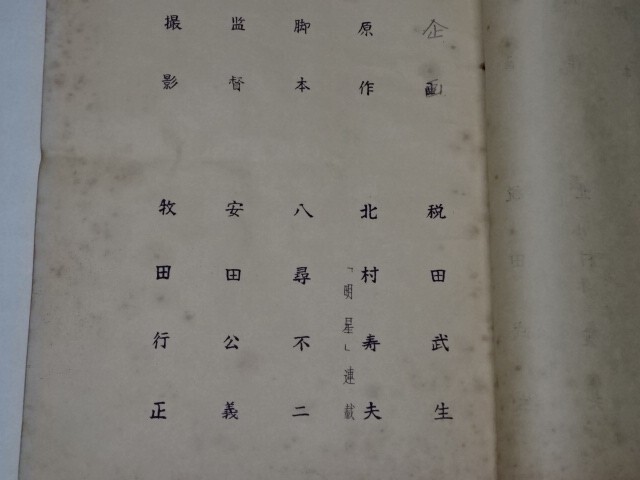 企画 税田武生
原作 北村寿夫
「明星」連載
脚本 八尋不二
監督 安田公義
撮影 牧田行正